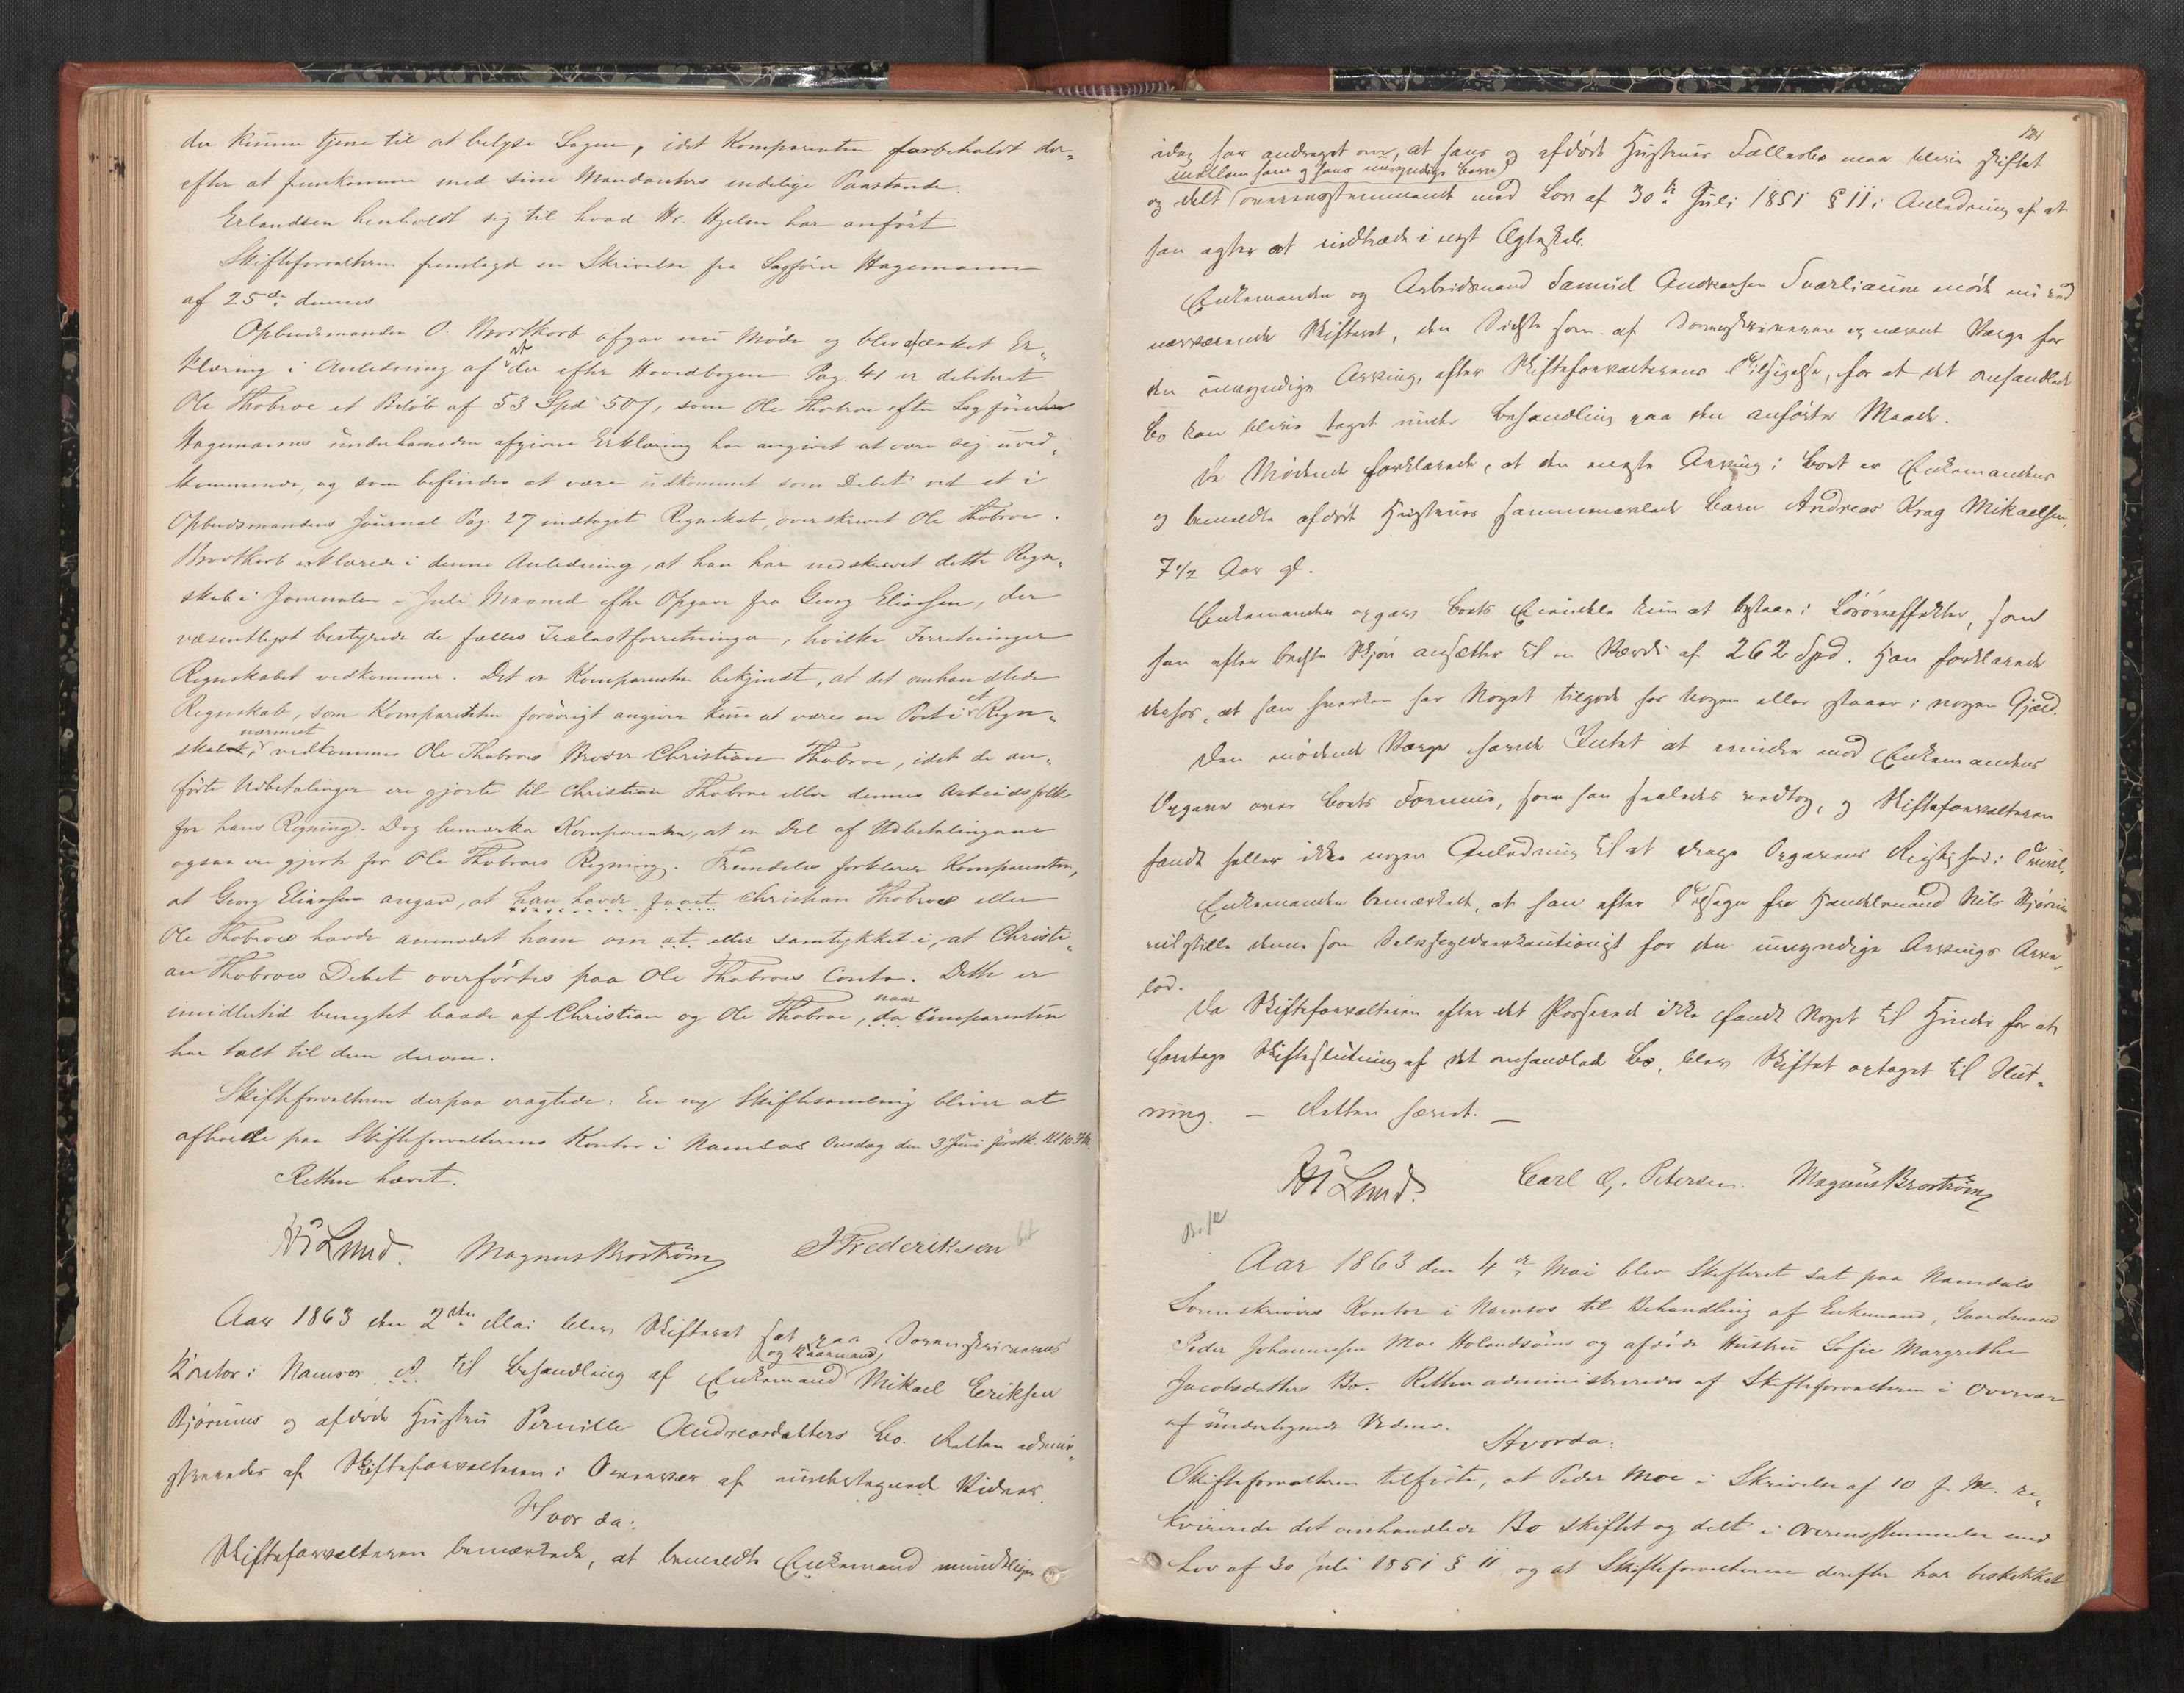 der kunne tjene til at belyse Sagen, idet Komparenten forbeholdt der-
efter at fremkomme med sine Mandanters endelige Paastande.
Erlandsen henholdt sig til hvad Hr. Hjelm har anført
Skifteforvalteren fremlagde en Skrivelse fra Sagfører Hagemann
af 25de dennes
Opbudsmanden O. Brodtkorb afgav nu Møde og blev afæsket Er-
klæring i Anledning af at der efter Hovedbogen Pag. 41 er debiteret
Ole Thobroe et Beløb af 53 Spd 50 /, som Ole Thobroe efter Sagfører
Hagemanns underhaanden afgivne Erklæring har angivet at være sig uved-
kommende, og som befindes at være udkommet som Debet ved et i
Opbudsmandens Journal Pag. 27 indtaget Regnskab, overskrevet Ole Thobroe.
Brodtkorb erklærede i denne Anledning, at han har nedskrevet dette Regn-
skab i Journalen i Juli Maaned efter Opgave fra Georg Eliassen, der
væsentligst bestyrede de fælles Trælastforretninger, hvilke Forretninger
Regnskabet vedkommer. Det er Komparenten bekjendt, at det omhandlede
Regnskab, som Komparenten forøvrigt angiver kun at være en Post i et Regn-
skab, nærmest vedkommer Ole Thobroes Broder Christian Thobroe, idet de an-
førte Udbetalinger ere gjorte til Christian Thobroe eller dennes Arbeidsfolk
for hans Regning. Dog bemærker Komparenten, at en Del af Udbetalingerne
ogsaa ere gjorte for Ole Thobroes Regning. Fremdeles forklarer Komparenten,
at Georg Eliassen angav, at han havde faaet Christian Thobroe eller
Ole Thobroe havde anmodet ham om at eller samtykket i, at Christi-
an Thobroes Debet overførtes paa Ole Thobroes Conto. Dette er
imidlertid benegtet baade af Christian og Ole Thobroe, da naar Comparenten
har talt til dem derom.
Skifteforvalteren derpaa eragtede: En ny Skiftesamling bliver at
afholde paa Skifteforvalterens Kontor i Namsos Onsdag den 3 Juni førstk. Kl 10 Fm.
Retten hævet.
Lund. Magnus Broström J Frederiksen
Aar 1863 den 2den Mai blev Skifteret sat paa Sorenskriverens
Kontor i Namsos til Behandling af Enkemand og Kaarmand Mikael Eriksen
Bjørums og afdøde Hustru Pernille Andreasdatters Bo. Retten admini-
streredes af Skifteforvalteren i Overvær af undertegnede Vidner.
Hvor da:
Skifteforvalteren bemærkede, at bemeldte Enkemand mundtligen
121
idag har andraget om, at hans og afdøde Hustrues Fællesbo maa blive skiftet
og delt mellem ham og hans umyndige Barn overensstemmende med Lov af 30te Juli 1851 § 11 i Anledning af at
han agter at indtræde i nyt Ægteskab.
Enkemanden og Arbeidsmand Samuel Andreasen Svarliaune mødte nu ved
nærværende Skifteret, den Sidste som af Sorenskriveren opnævnt Værge for
den umyndige Arving, efter Skifteforvalterens Tilsigelse, for at det omhandlede
Bo kan blive taget under Behandling paa den anførte Maade.
De Mødende forklarede, at den eneste Arving i Boet er Enkemandens
og bemeldte afdøde Hustrues sammenavlede Barn Andreas Krag Mikaelsen,
7 1/2 Aar gl.
Enkemanden opgav Boets Eiendele kun at bestaae i Løsøreeffekter, som
han efter bedste Skjøn ansætter til en Værdi af 262 Spd. Han forklarede
derhos, at han hverken har Noget tilgode hos Nogen eller staaer i nogen Gjæld.
Den mødende Værge havde Intet at erindre mod Enkemandens
Opgave over Boets Formue, som han saaledes vedtog, og Skifteforvalteren
fandt heller ikke nogen Anledning til at drage Opgavens Rigtighed i Tvivl.
Enkemanden bemærkede, at han efter Tilsagn fra Handelsmand Nils Bjørum
vil stille denne som Selvskyldnerkautionist for den umyndige Arvings Arve-
lod.
Da Skifteforvalteren efter det Passerede ikke fandt Noget til Hinder for at
foretage Skifteslutning af det omhandlede Bo, blev Skiftet optaget til Slut-
ning. – Retten hævet. –
Lund. Carl O. Petersen. Magnus Broström
Aar 1863 den 4de Mai blev Skifteret sat paa Namdals
Sorenskrivers Kontor i Namsos til Behandling af Enkemand, Gaardmand
Peder Johannesen Moe Holandsøns og afdøde Hustru Sofie Margrethe
Jacobsdatters Bo. Retten administreredes af Skifteforvalteren i Overvær
af undertegnede Vidner.
Hvorda:
Skifteforvalteren tilførte, at Peder Moe i Skrivelse af 10 f. M. re-
kvirerede det omhandlede Bo skiftet og delt i Overensstemmelse med
Lov af 30 Juli 1851 § 11 og at Skifteforvalteren derefter har beskikket